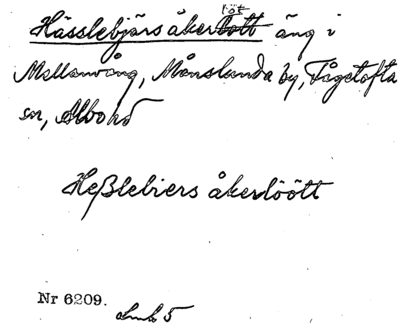 Hässlebjärs åkerlott löt äng i
Mellanvång, Månslunda by, Fågeltofta
sn, Albo hd
Heßlebiers åkerlöött
Nr 6209.
5